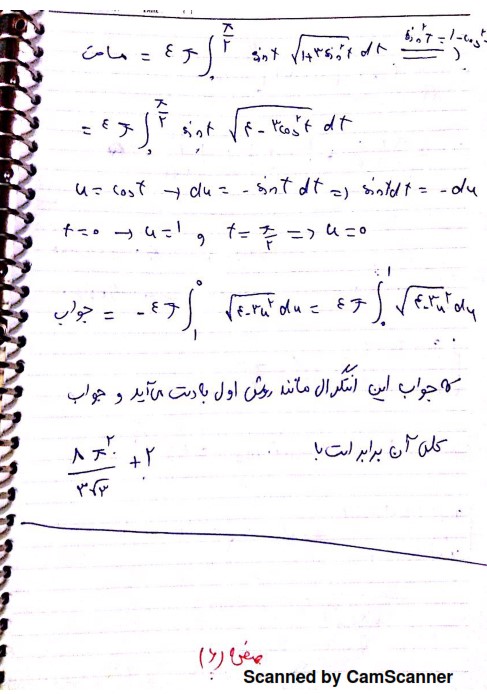 مساحت = ٤π∫₀^(π/٢) sint √(1+٣sin²t) dt sin²t = 1-cos²
= ٤π∫₀^(π/٢) sint √(۴-٣cos²t) dt
u = cost → du = -sint dt => sint dt = -du
t=0 → u=1 و t=π/٢ => u=0
جواب = -٤π∫₁⁰ √(۴-٣u²) du = ٤π∫₀¹ √(۴-٣u²) du
جواب این انتگرال مانند روش اول بدست می‌آید و جواب
کلی آن برابر است با
٨π²/٣√٣ + ٢
صفحه (۶)
Scanned by CamScanner